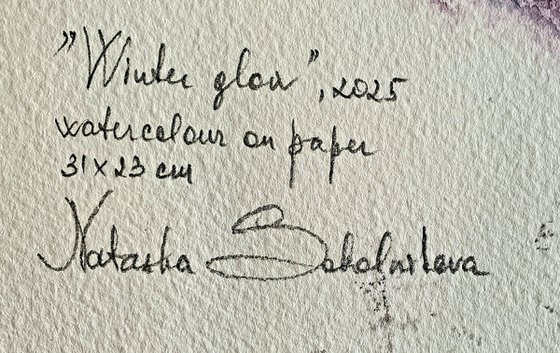 "Winter glow", 2025
watercolour on paper
31x23 cm
Natasha Sokolnikova